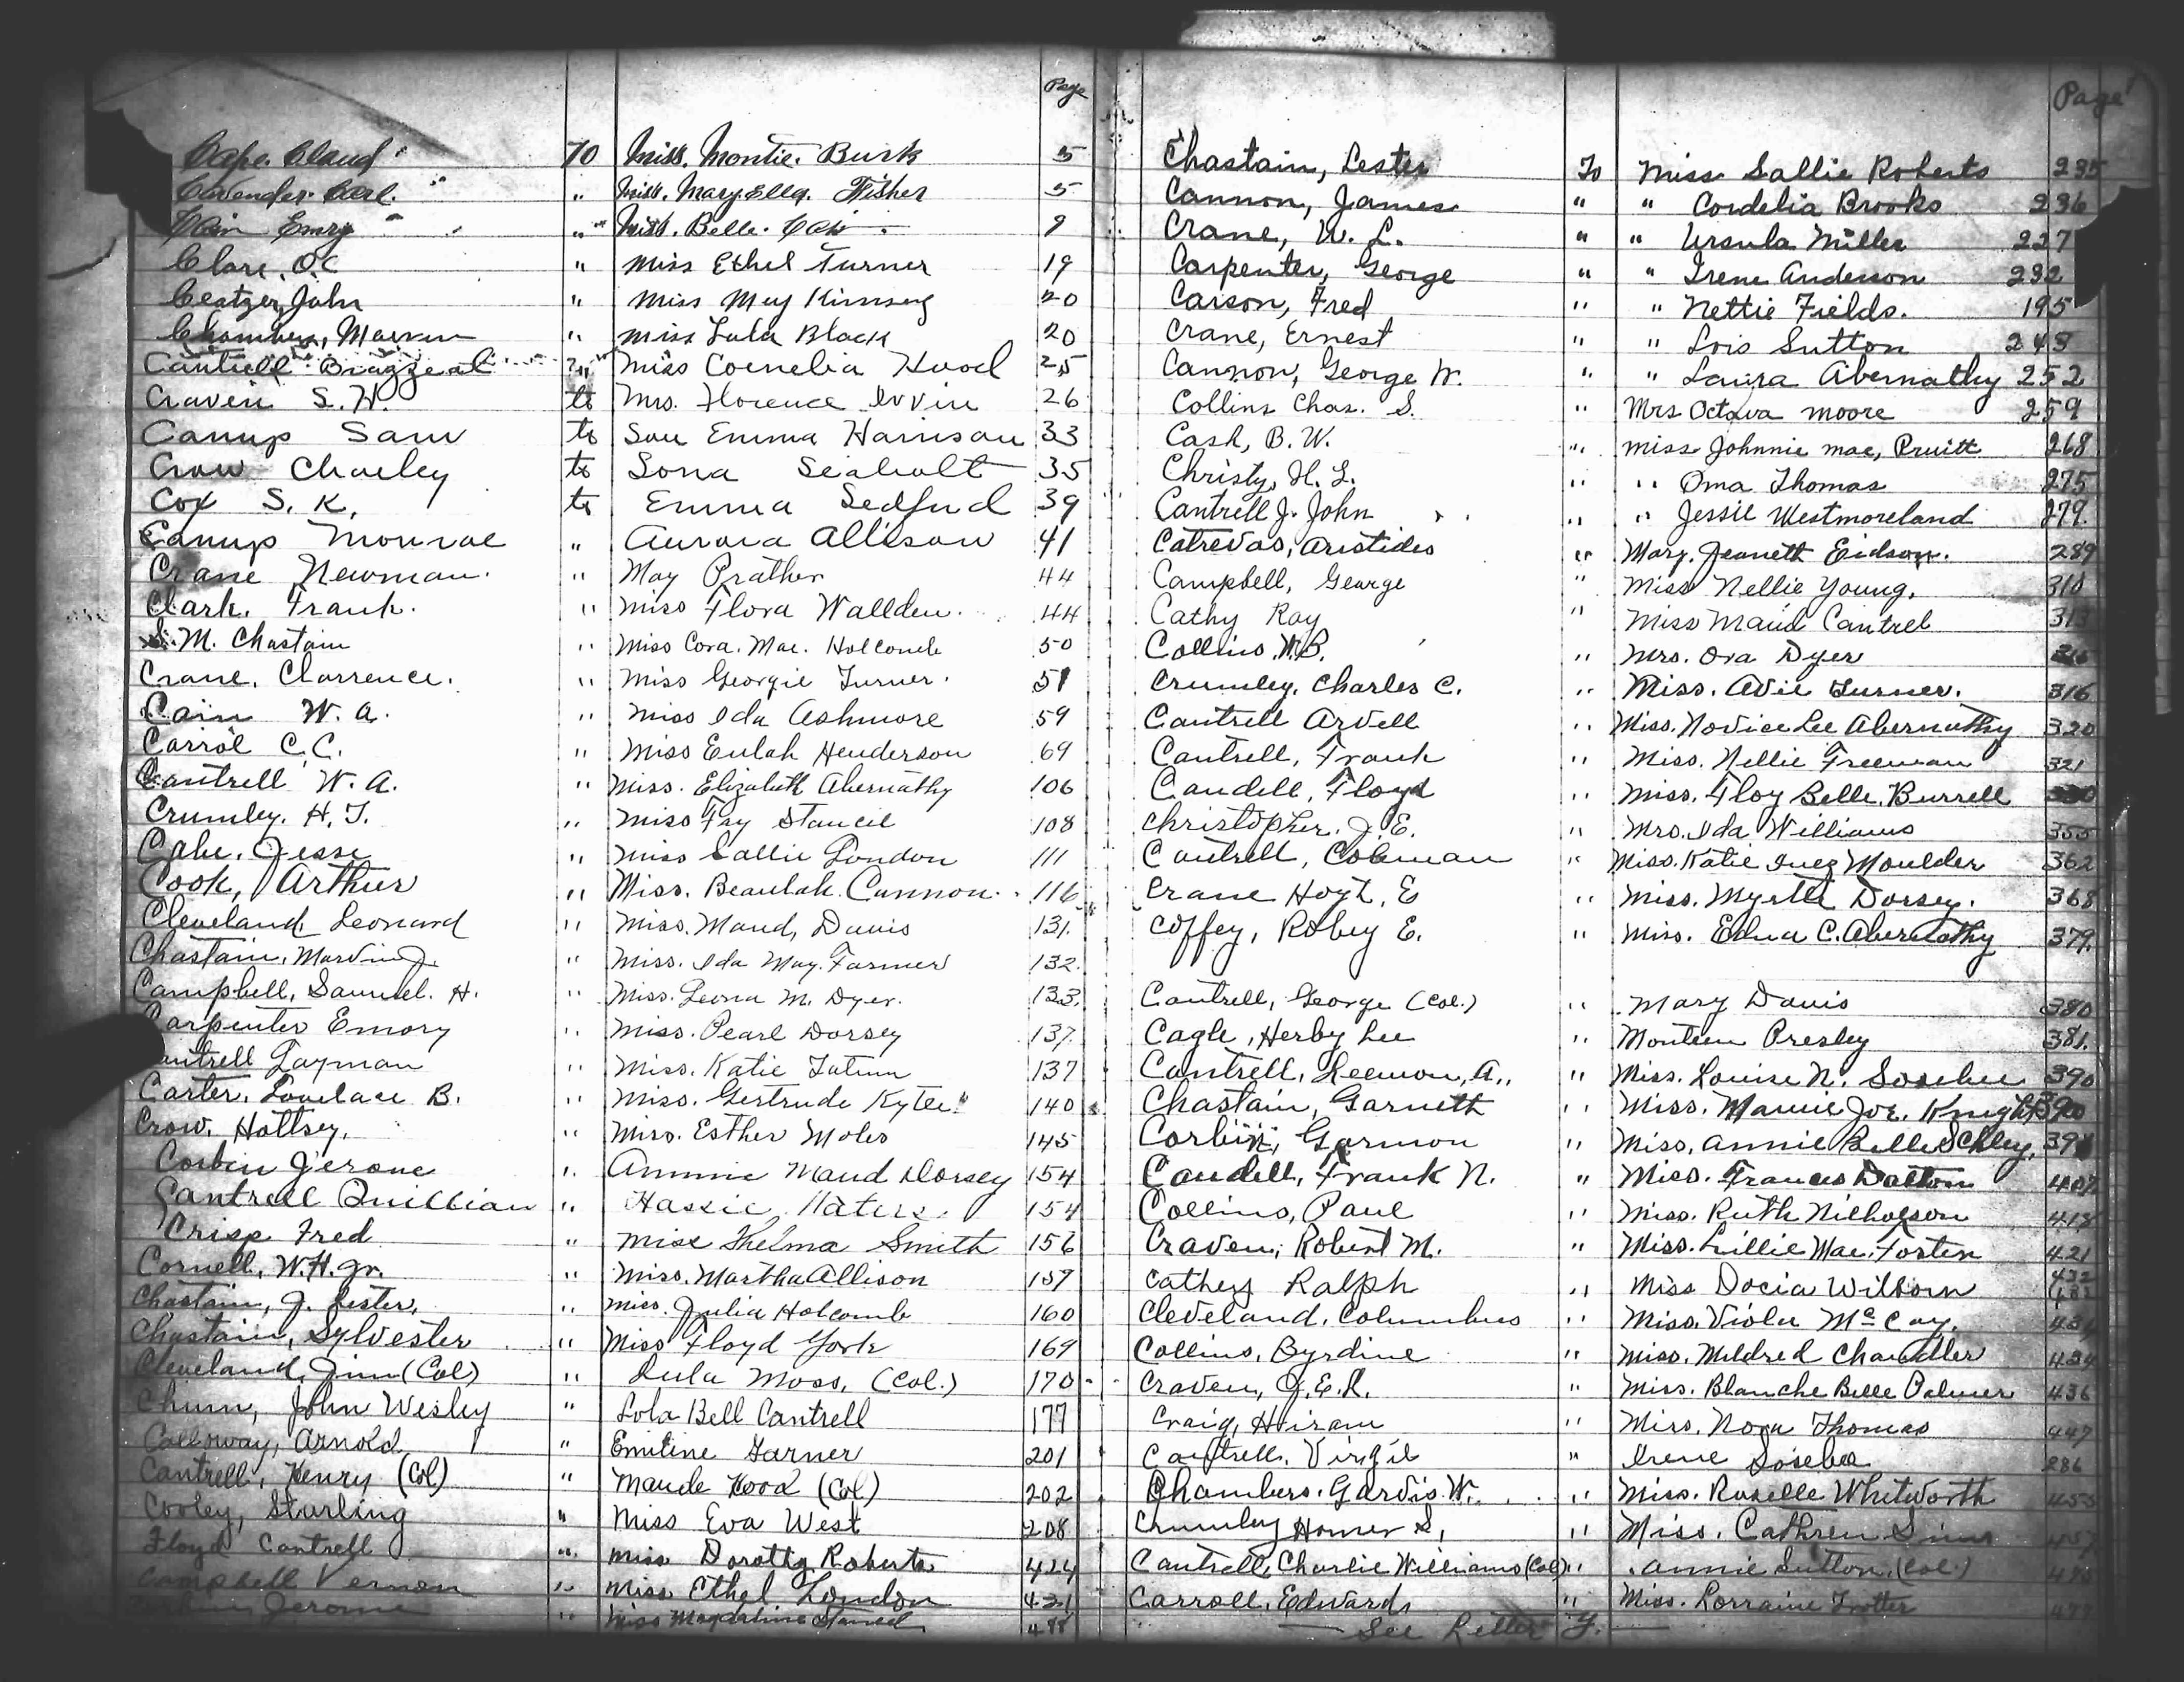 Page
Cape. Claud To Miss. Montie. Burk 5
Cavender Carl. " Miss. Mary Ella. Fisher 5
Cain Emry " Miss. Belle. Cain. 9
Clare. O.C " Miss Ethel Turner 19
John " Miss May Kimsey 20
Chambers, " Miss Lula Black 20
Cantrell " Miss Cornelia Hood 25
Craven S. W. to Mrs. Florence Irvin 26
Canup Sam to Sou Emma Harrison 33
Crow Charley to Lona Seabolt 35
Cox S. K. to Emma Ledford 39
Canup Monroe " Aurora Allison 41
Crane Newman. " May Prather 44
Clark. Frank. " Miss Flora Wallden. 44
S. M. Chastain " Miss Cora. Mae. Holcomb 50
Crane. Clarrence. " Miss Georgie Turner. 51
Cain W. A. " Miss Ida Ashmore 59
Carrol C. C. " Miss Eulah Henderson 69
Cantrell W. A. " Miss. Elizabeth Abernathy 106
Crumley. H. T. " Miss Fay Stancil 108
Cabe. Jesse " Miss Sallie London 111
Cook, Arthur " Miss. Beaulah Cannon. 116
Cleveland Leonard " Miss. Maud, Davis 131.
Chastain. Marvin J. " Miss. Ida May. Farmer 132.
Campbell, Samuel. H. " Miss. Leona M. Dyer. 133.
Carpenter Emory " Miss. Pearl Dorsey 137.
Cantrell Layman " Miss. Katie Tatum 137
Carter. Lovelace B. " Miss. Gertrude Kytle 140
Crow. Hattsey. " Miss. Esther Moles 145
Corbin Jerome " Ammie Maud Dorsey 154
Cantrell Quillian " Hassie Waters. 154
Crisp Fred " Miss Thelma Smith 156
Cornell, W. H. Jr. " Miss. Martha Allison 159
Chastain, J. Lester, " Miss. Julia Holcomb 160
Chastain, Sylvester " Miss Floyd York 169
Cleveland, Jim (Col) " Lula Moss, (Col.) 170
Chum, John Wesley " Lola Bell Cantrell 177
Calloway, Arnold " Emiline Garner 201
Cantrell, Henry (Col) " Maude Hood (Col) 202
Cooley, Starling " Miss Eva West 208
Floyd Cantrell " Miss Dorothy Roberts 424
Campbell Vernon " Miss Ethel London 421
Jerome " Miss 498
Page
Chastain, Lester To Miss Sallie Roberts 235
Cannon, James " " Cordelia Brooks 236
Crane, W. L. " " Ursula Miller 227
Carpenter, George " " Irene Anderson 232
Carson, Fred " " Nettie Fields. 195
Crane, Ernest " " Lois Sutton 248
Cannon, George W. " " Laura Abernathy 252
Collins Chas. S. " Mrs Octava Moore 259
Cash, B. W. " Miss Johnnie Mae, Pruitt 268
Christy, H. L. " " Oma Thomas 275
Cantrell J. John " " Jessie Westmoreland 279.
Catrevas, Aristides " Mary. Jeanett Eidson. 289
Campbell, George " Miss Nellie Young. 310
Cathy Ray " Miss Maud Cantrel 313
Collins W. B. " Mrs. Ora Dyer
Crumley. Charles C. " Miss. Avie Turner. 316
Cantrell Arvell " Miss. Novice Lee Abernathy 320
Cantrell, Frank " Miss. Nellie Freeman 321
Caudell, Floyd " Miss. Floy Belle Burrell
Christopher. J. E. " Mrs. Ida Williams 355
Cantrell, Coleman " Miss. Katie Inez Moulder 362
Crane Hoyt, E " Miss. Myrtle Dorsey. 368
Coffey, Robey E. " Miss. Edna C. Abernathy 379.
Cantrell, George (Col.) " Mary Davis 380
Cagle, Herby Lee " Monteen Presley 381.
Cantrell, Leemon, A., " Miss. Louise N. Sosebee 390
Chastain, Garnett " Miss. Mamie Joe. Knight 390
Corbin, Garmon " Miss. Annie Belle Schley, 391
Caudell, Frank N. " Miss. Frances Dalton 407
Collins, Paul " Miss. Ruth Nicholson 418
Craven, Robert M. " Miss. Lillie Mae. Fosten 421
Cathey Ralph " Miss Docia Wilborn 432
Cleveland, Columbus " Miss. Viola McCoy. 434
Collins, Byrdine " Miss. Mildred Chandler 434
Craven, J. E. R. " Miss. Blanche Belle Palmer 436
Craig, Hiram " Miss. Nora Thomas 447
Cantrell. Virgil " Irene Sosebee 286
Chambers. Garvis W. " Miss. Roselle Whitworth 455
Crumley Homer S, " Miss. Cathren Sims 457
Cantrell, Charlie Williams (Col) " Annie Sutton, (Col.)
Carroll, Edwards " Miss. Lorraine Trotter
See Letter Y.